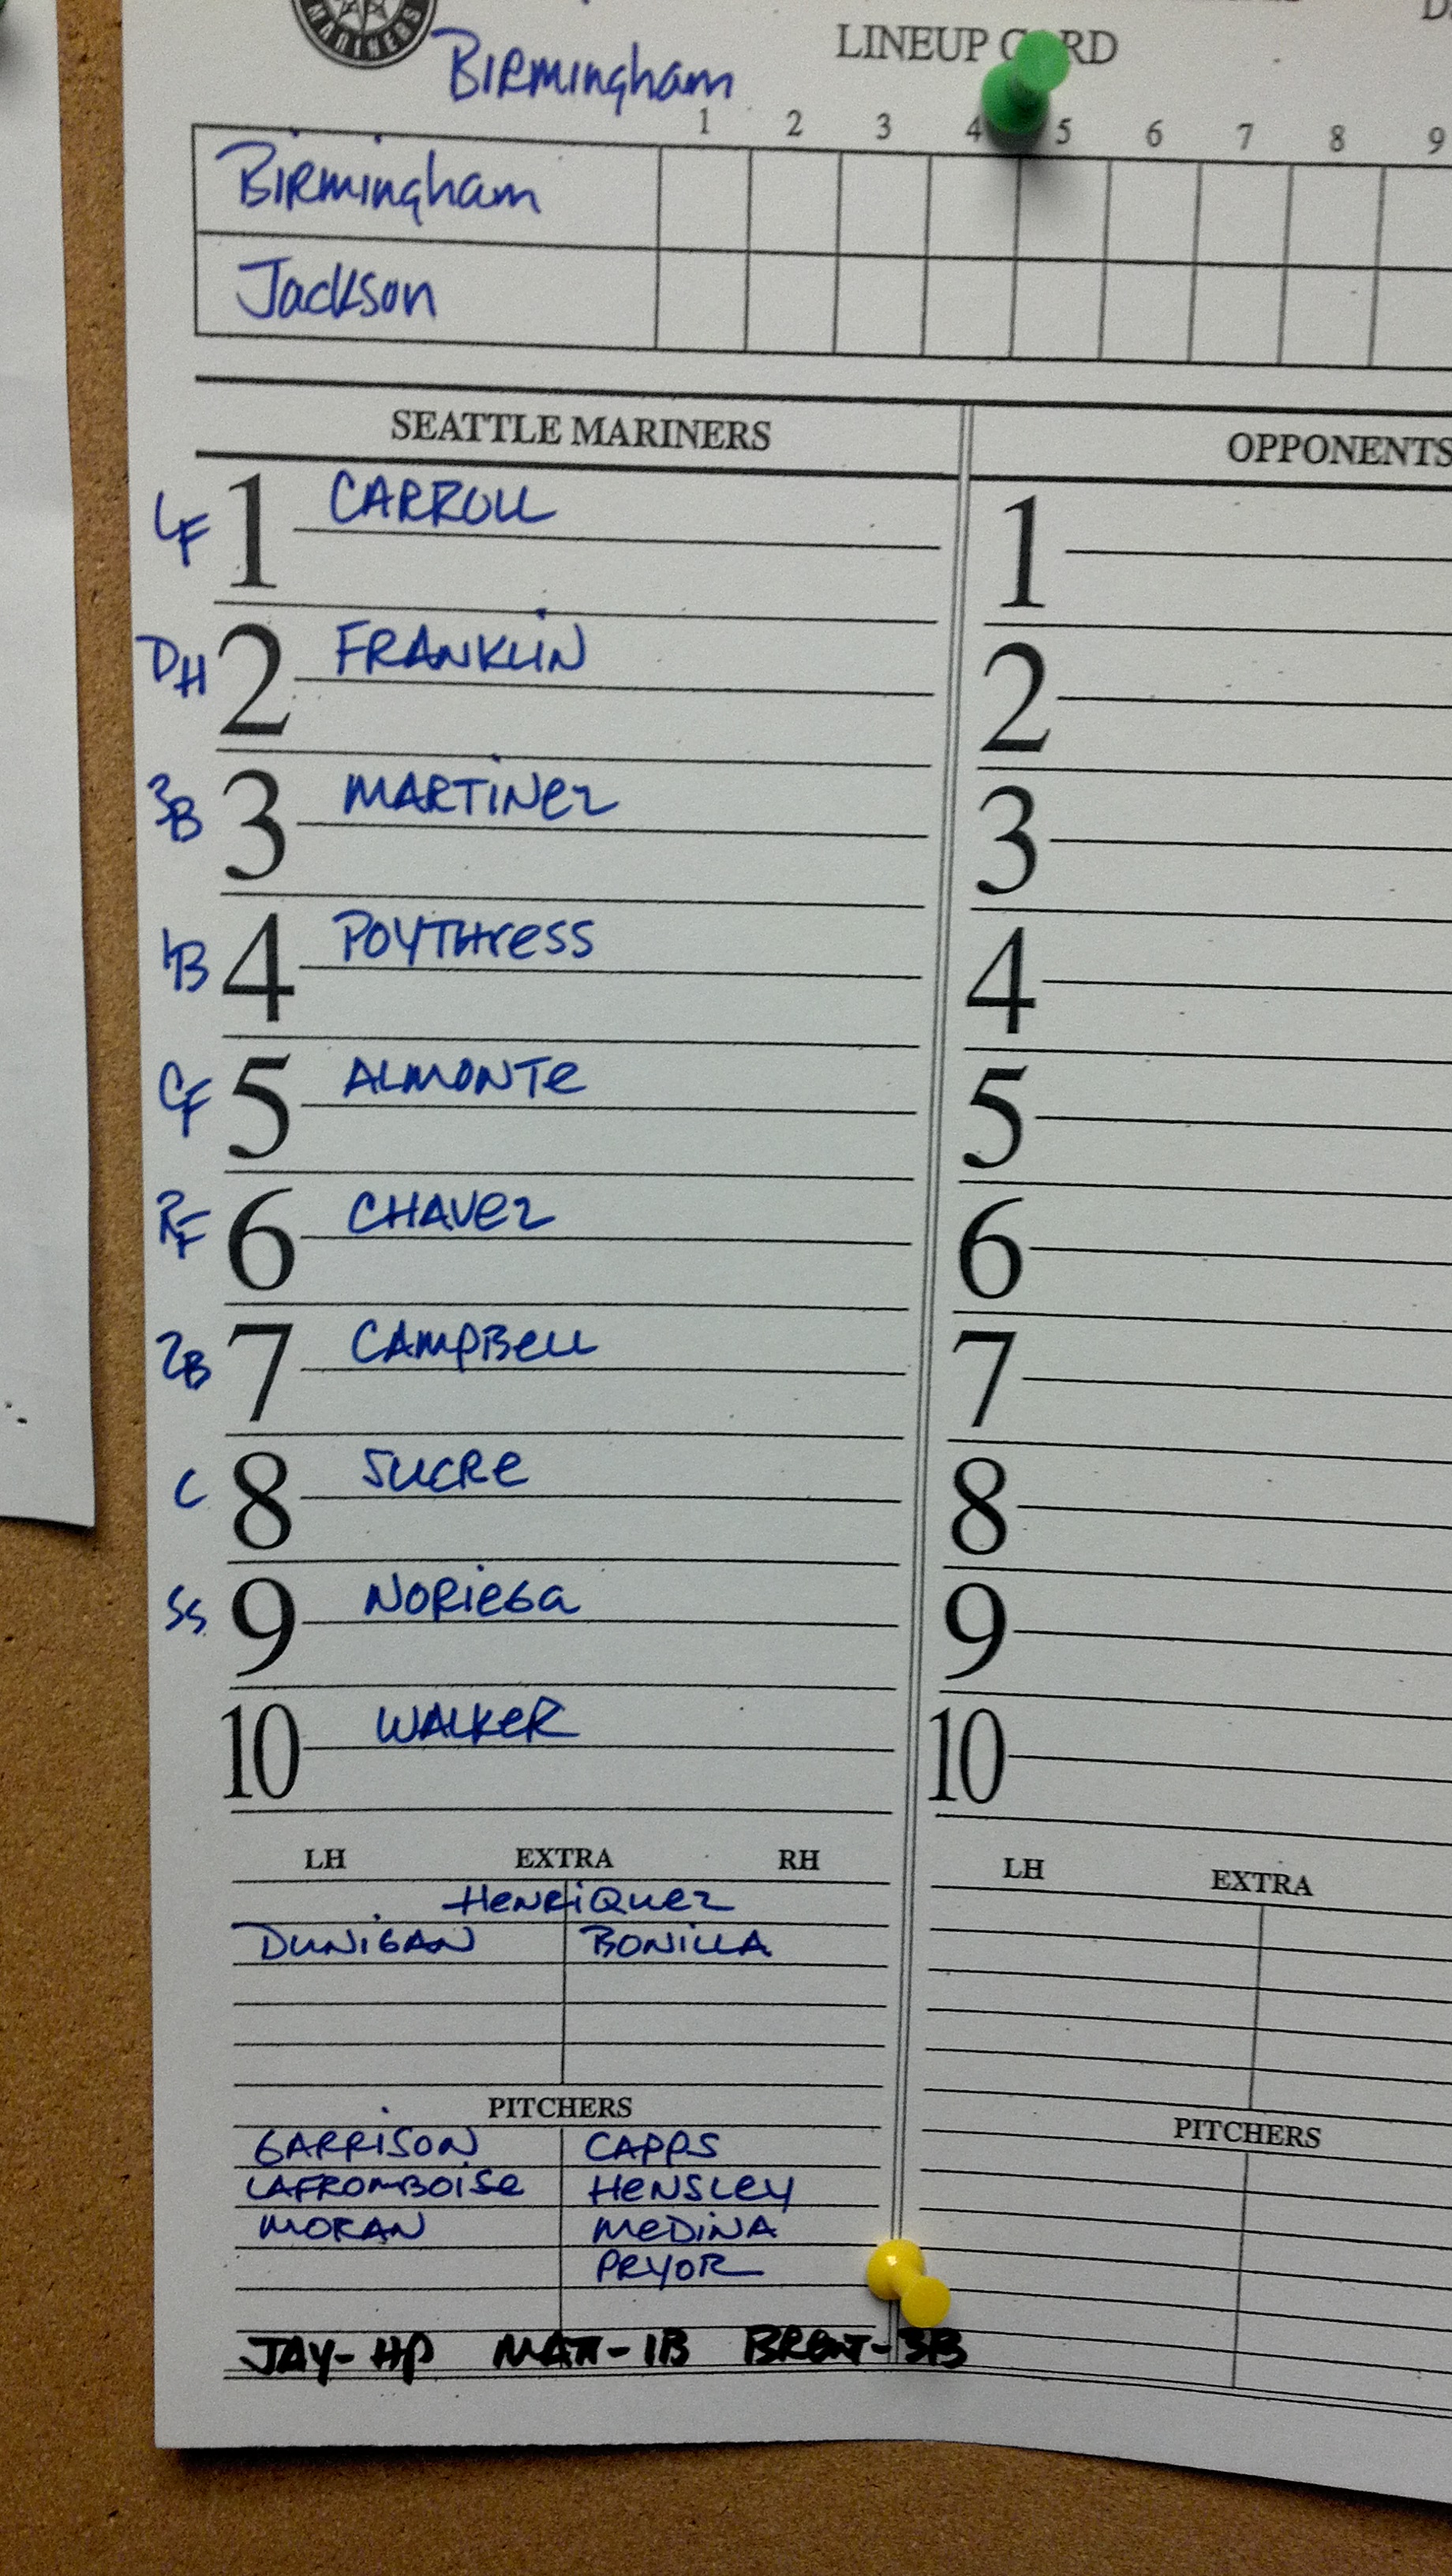 MARINERS
LINEUP CARD
Birmingham
1 2 3 4 5 6 7 8 9
Birmingham
Jackson
SEATTLE MARINERS
LF 1 CARROLL
DH 2 FRANKLIN
3B 3 MARTINEZ
1B 4 POYTHRESS
CF 5 ALMONTE
RF 6 CHAVEZ
2B 7 CAMPBELL
C 8 SUCRE
SS 9 NORIEGA
10 WALKER
LH EXTRA RH
HENRIQUEZ
DUNIGAN BONILLA
PITCHERS
GARRISON CAPPS
LAFROMBOISE HENSLEY
MORAN MEDINA
PRYOR
JAY-HP MATT-1B BRENT-3B
OPPONENTS
1
2
3
4
5
6
7
8
9
10
LH EXTRA
PITCHERS